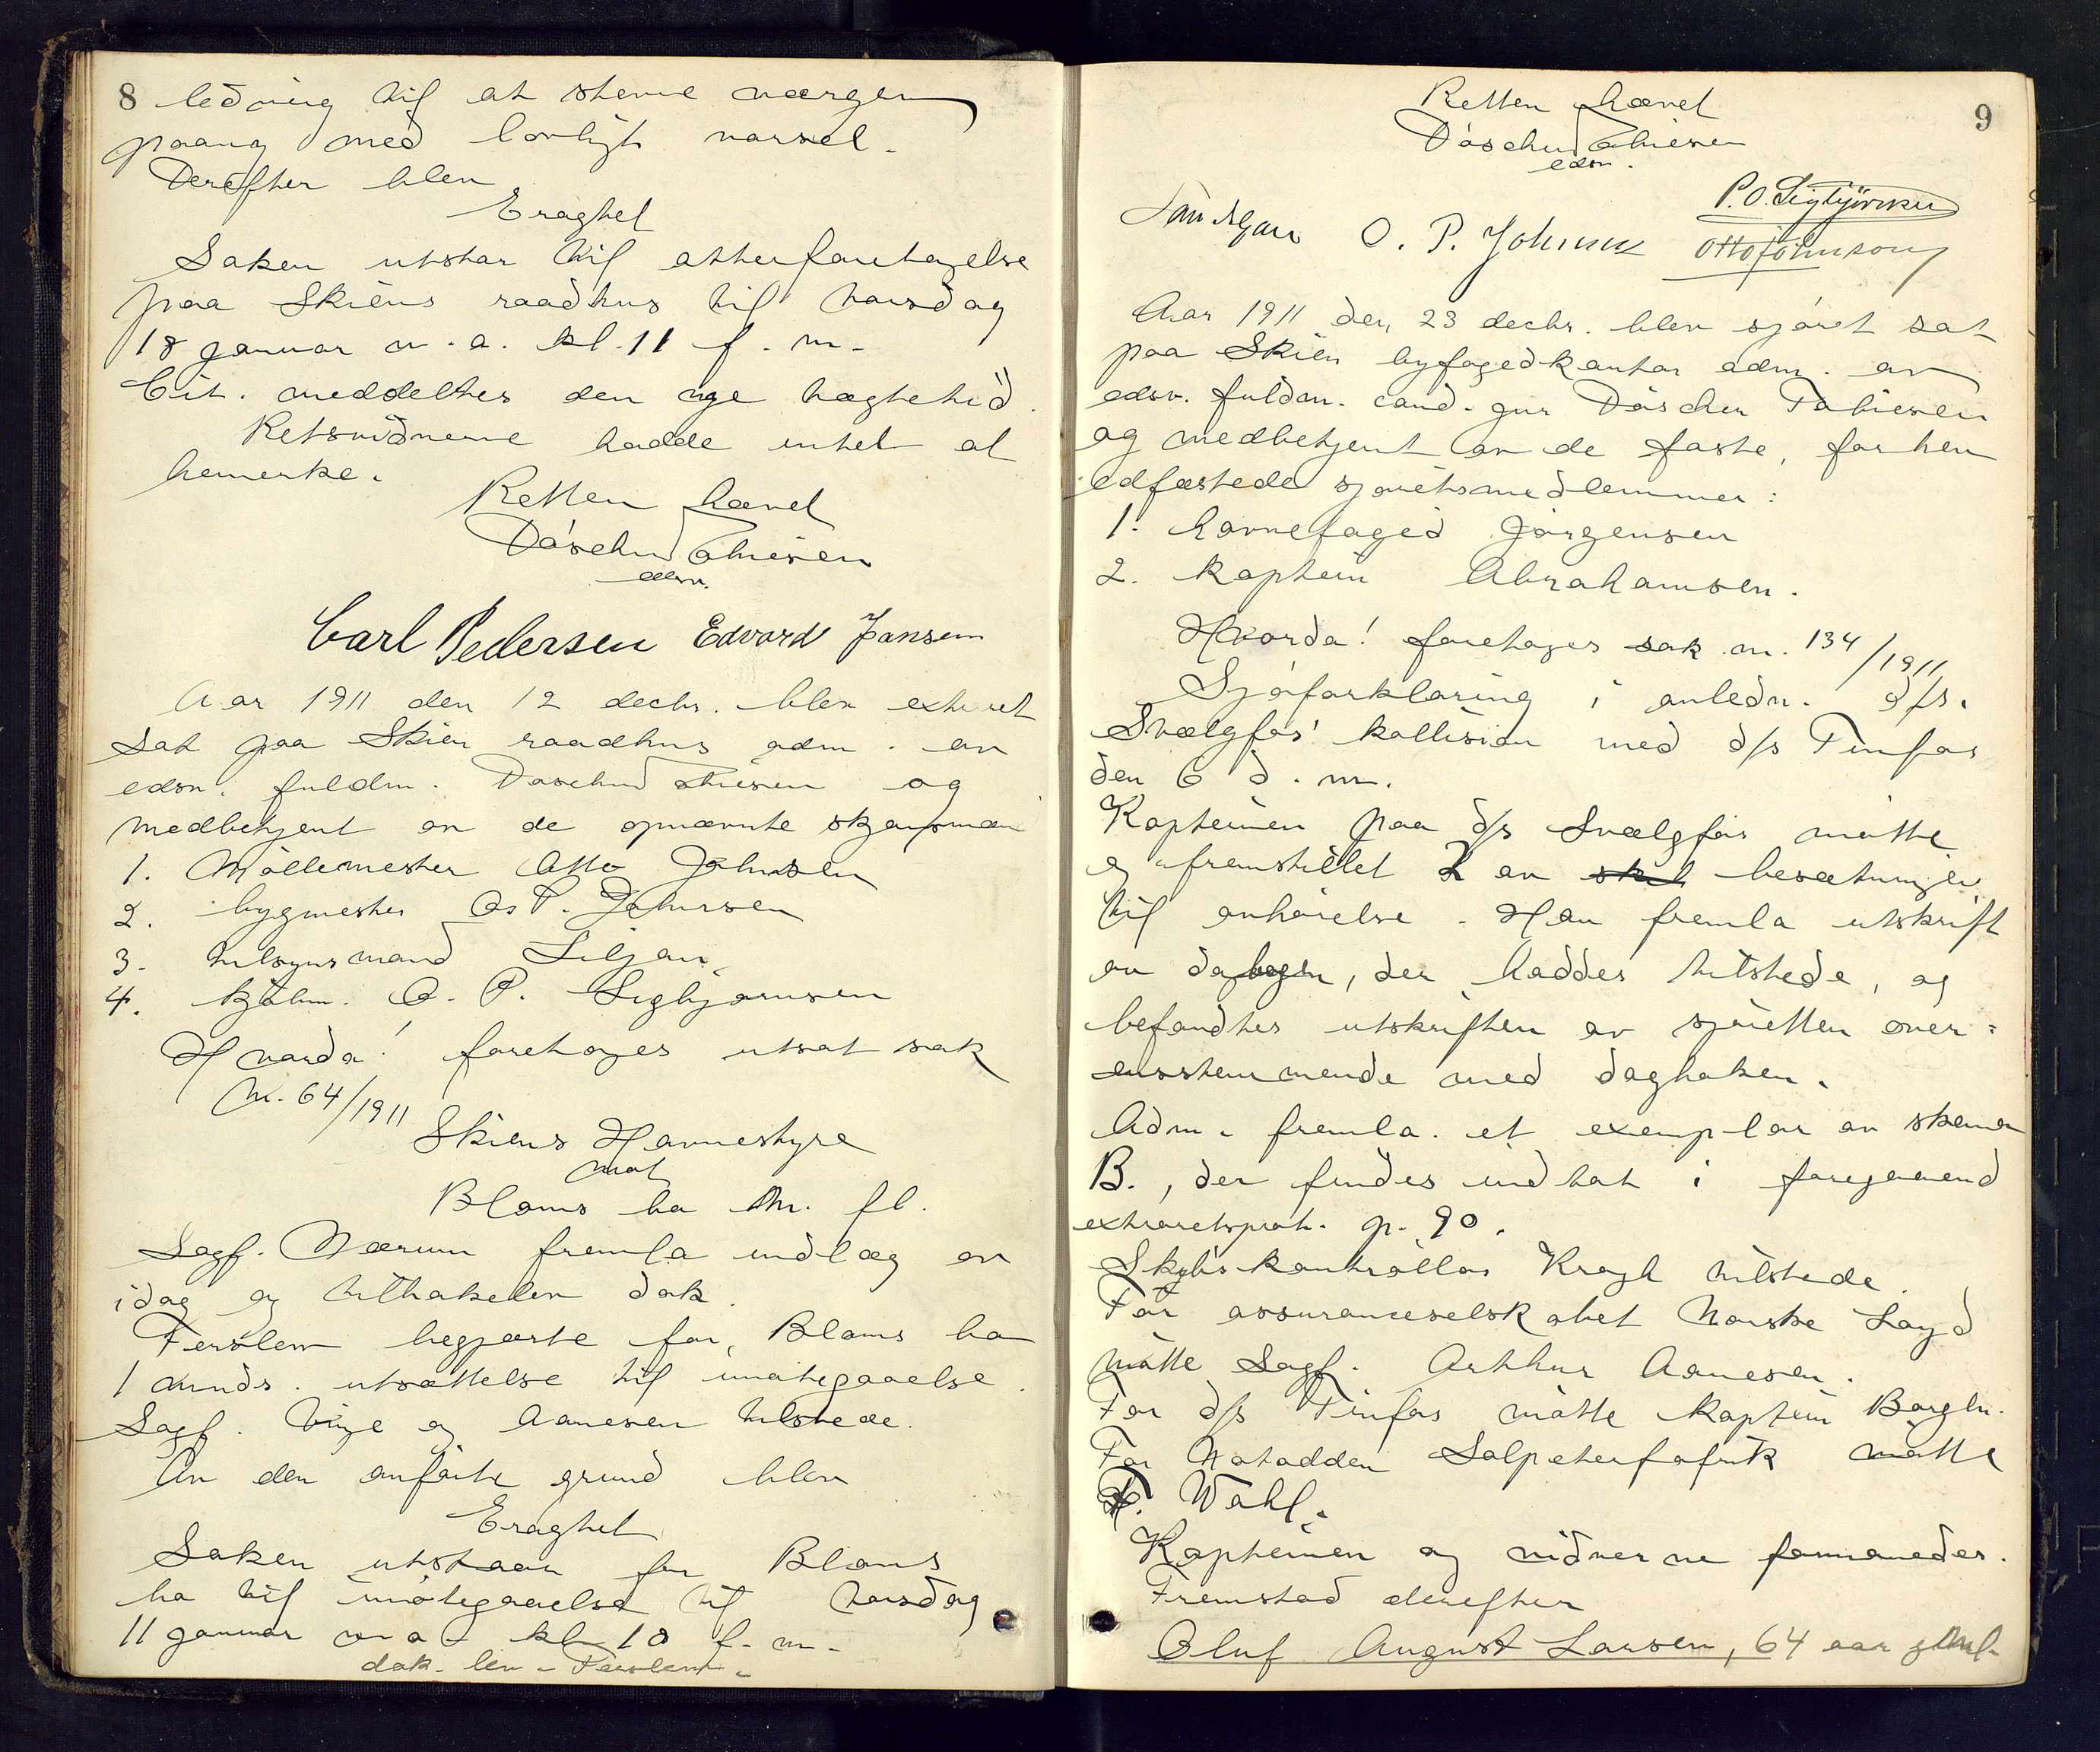 8 ledning til at stevne værgen
paany med lovligt varsel.
Derefter blev
Eragtet
Saken utstaar til atterforetagelse
paa Skiens raadhus til torsdag
18 januar n. a. kl. 11 f. m.
Cit. meddeltes den nye tægtetid.
Retsvidnerne hadde intet at
bemerke.
Retten hævet
Døscher Tobiesen
edsv.
Carl Pedersen Edvard Jansen
Aar 1911 den 12 decbr. blev extraret
sat paa Skien raadhus adm. av
edsv. fuldm. Døscher Tobiesen og
medbetjent av de opnævnte skjønsmænd
1. Møllemester Otto Johnsen
2. bygmester O. P. Johnsen
3. tilsynsmand Siljan
4. kjøbm. P. O. Sigbjørnsen
Hvorda! foretoges utsat sak
nr. 64/1911
Skiens Havnestyre
mot
Bloms bo m. fl.
Sagf. Nærum fremla indlæg av
idag og tilbakelev. dok.
Ferslew begjærte for Bloms bo
1 mnds. utsættelse til imøtegaaelse.
Sagf. Vinje og Aanesen tilstede.
Av den anførte grund blev
Eragtet
Saken utstaar for Bloms
bo til imøtegaaelse til torsdag
11 januar n. a. kl. 10 f. m.
dok. lev. Ferslew.
9
Retten hævet
Døscher Tobiesen
edsv.
P. O. Sigbjørnsen
O. P. Johnsen Otto Johnsen
Aar 1911 den 23 decbr. blev sjøret sat
paa Skien byfogedkontor adm. av
edsv. fuldm. cand. jur Døscher Tobiesen
og medbetjent av de faste, forhen
edfæstede sjøretsmedlemmer:
1. havnefoged Jørgensen
2. kaptein Abrahamsen.
Hvorda! foretoges sak nr. 134/1911
Sjøforklaring i anledn. d/s.
Svælgfos' kollision med d/s Tinfos
den 6 d. m.
Kapteinen paa d/s Svælgfos møtte
og fremstillet 2 av besætningen
til anhørelse. Han fremla utskrift
av dagbogen, der haddes tilstede, og
befandtes utskriften av sjøretten over=
ensstemmende med dagboken.
Adm. fremla. et exemplar av skema
B., der findes indtat i foregaaend
extraretsprot. p. 90.
Skibskontrollør Kragh tilstede.
For assuranceselskabet Norske Loyd
møtte Sagf. Arthur Aanesen.
For d/s Tinfos møtte kaptein Borgln.
For Notodden Salpeterfabrik møtte
F. Wahl.
Kapteinen og vidnerne formanedes.
Fremstod derefter
Oluf August Larsen, 64 aar gml.